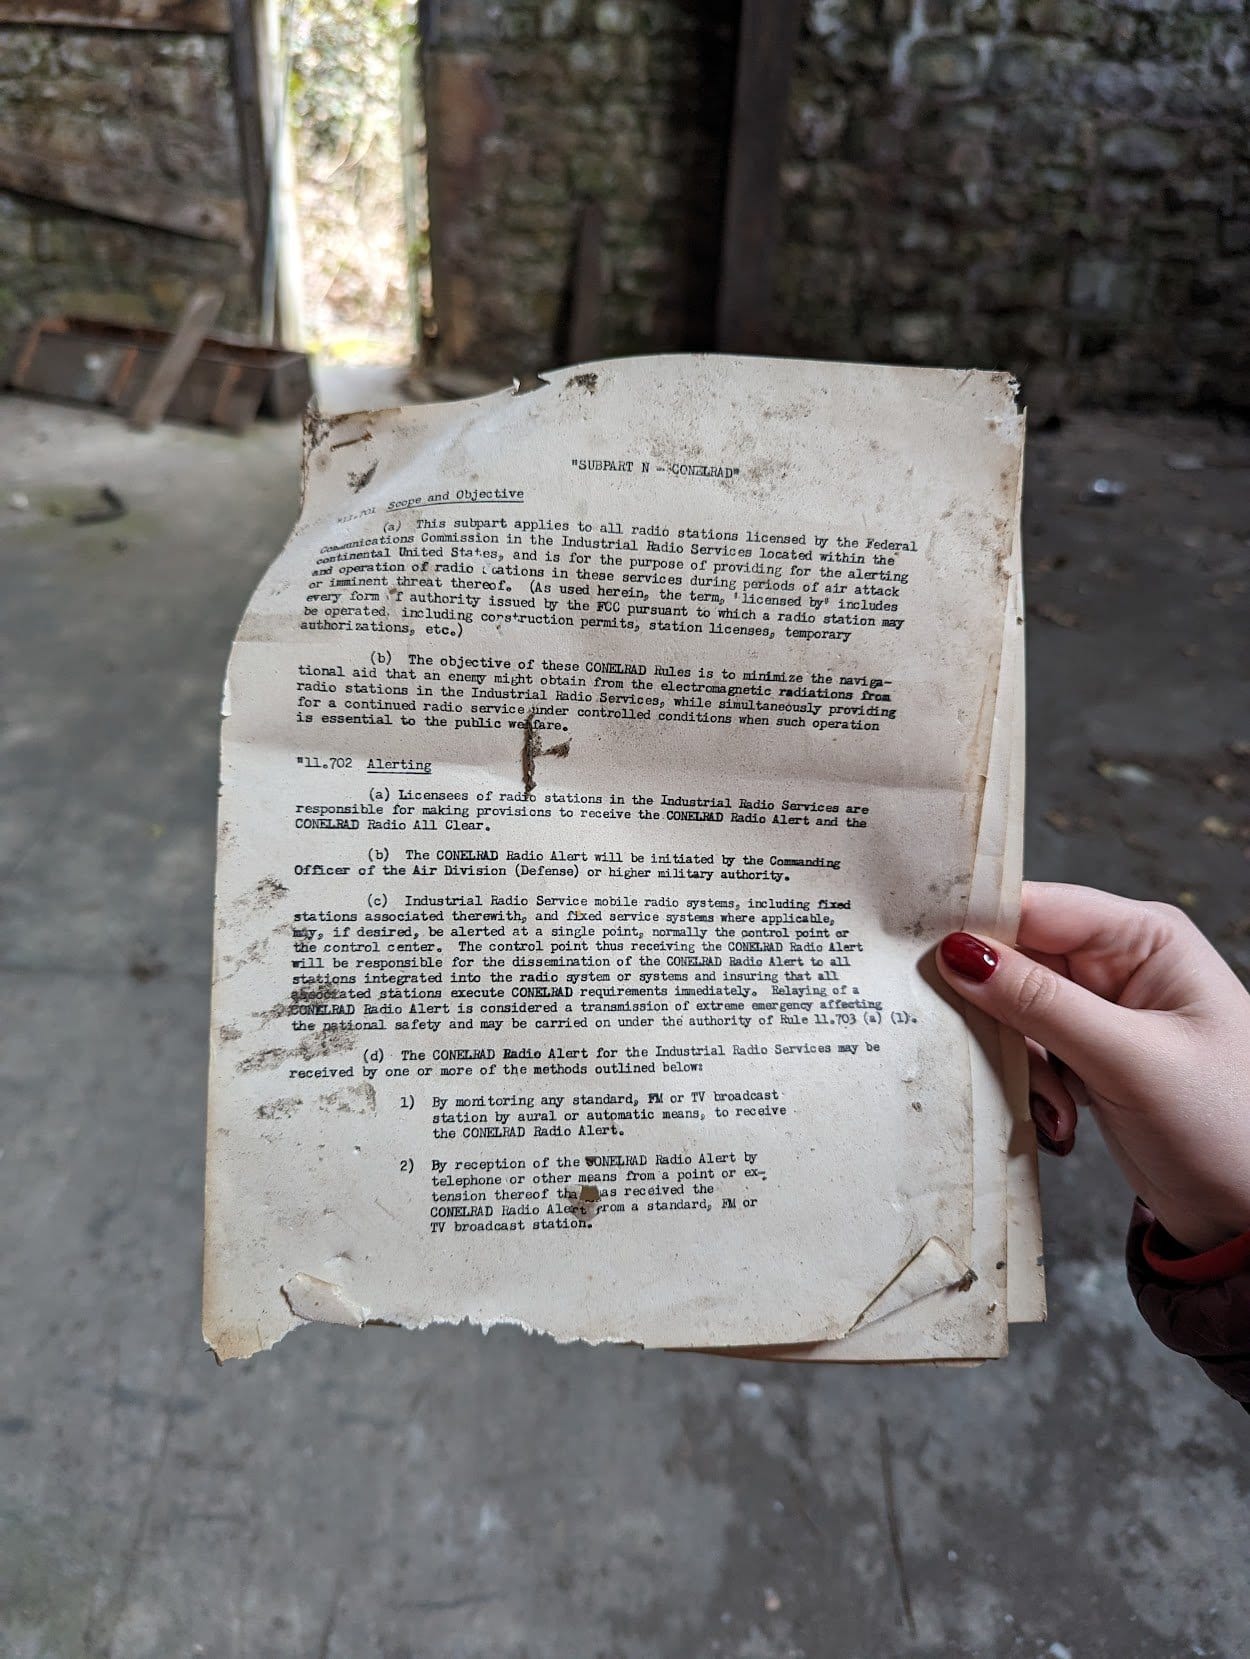 "SUBPART N - CONELRAD"
"11.701 Scope and Objective
(a) This subpart applies to all radio stations licensed by the Federal
Communications Commission in the Industrial Radio Services located within the
continental United States, and is for the purpose of providing for the alerting
and operation of radio stations in these services during periods of air attack
or imminent threat thereof. (As used herein, the term, "licensed by" includes
every form of authority issued by the FCC pursuant to which a radio station may
be operated, including construction permits, station licenses, temporary
authorizations, etc.)
(b) The objective of these CONELRAD Rules is to minimize the naviga-
tional aid that an enemy might obtain from the electromagnetic radiations from
radio stations in the Industrial Radio Services, while simultaneously providing
for a continued radio service under controlled conditions when such operation
is essential to the public welfare.
"11.702 Alerting
(a) Licensees of radio stations in the Industrial Radio Services are
responsible for making provisions to receive the CONELRAD Radio Alert and the
CONELRAD Radio All Clear.
(b) The CONELRAD Radio Alert will be initiated by the Commanding
Officer of the Air Division (Defense) or higher military authority.
(c) Industrial Radio Service mobile radio systems, including fixed
stations associated therewith, and fixed service systems where applicable,
may, if desired, be alerted at a single point, normally the control point or
the control center. The control point thus receiving the CONELRAD Radio Alert
will be responsible for the dissemination of the CONELRAD Radio Alert to all
stations integrated into the radio system or systems and insuring that all
associated stations execute CONELRAD requirements immediately. Relaying of a
CONELRAD Radio Alert is considered a transmission of extreme emergency affecting
the national safety and may be carried on under the authority of Rule 11.703 (a) (1).
(d) The CONELRAD Radio Alert for the Industrial Radio Services may be
received by one or more of the methods outlined below:
1) By monitoring any standard, FM or TV broadcast
station by aural or automatic means, to receive
the CONELRAD Radio Alert.
2) By reception of the CONELRAD Radio Alert by
telephone or other means from a point or ex-
tension thereof that has received the
CONELRAD Radio Alert from a standard, FM or
TV broadcast station.